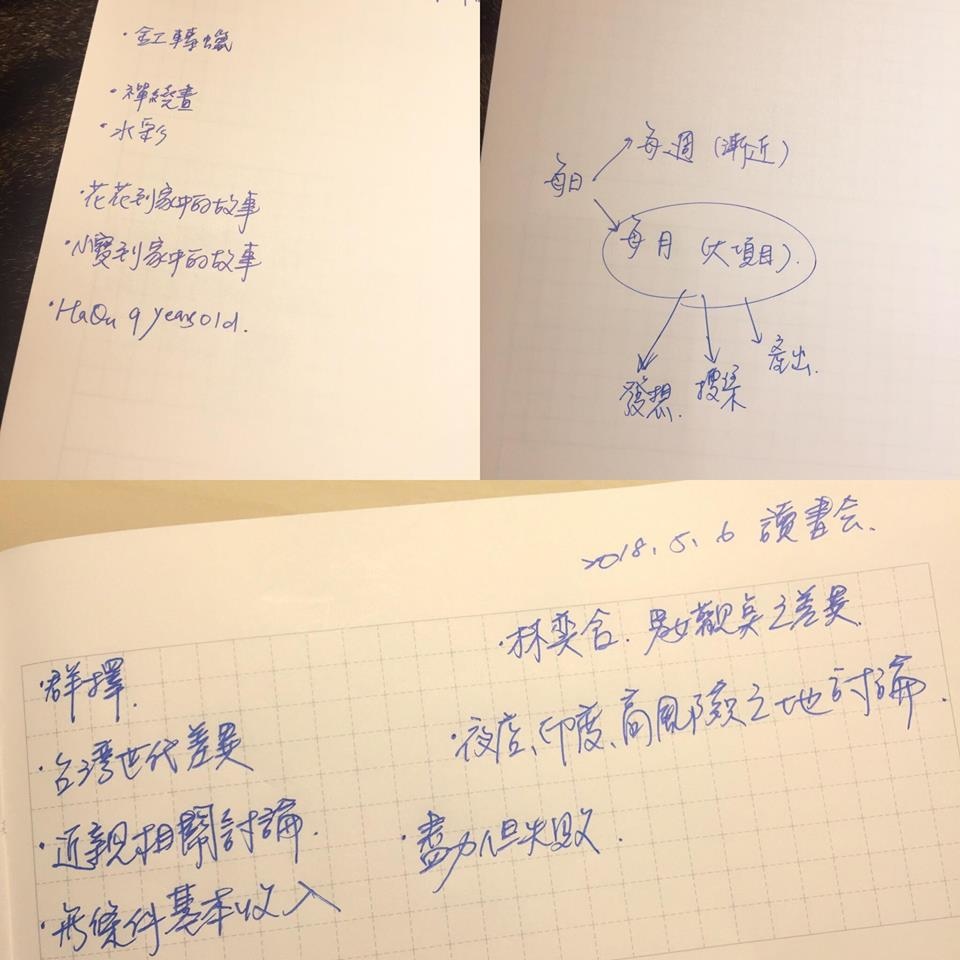 ・金工轉蠟
・禪繞畫
・水彩
・花花到家中的故事
・小寶到家中的故事
・HaQu 9 years old.
每日
每週(漸近)
每月(大項目).
發想.
搜集
產出.
2018.5.6 讀書会.
・群擇.
・台湾世代差異
・近親相關討論.
・無條件基本收入
・林奕含. 男女觀點之差異.
・夜店、印度、高風險之地討論.
・盡力但失敗.